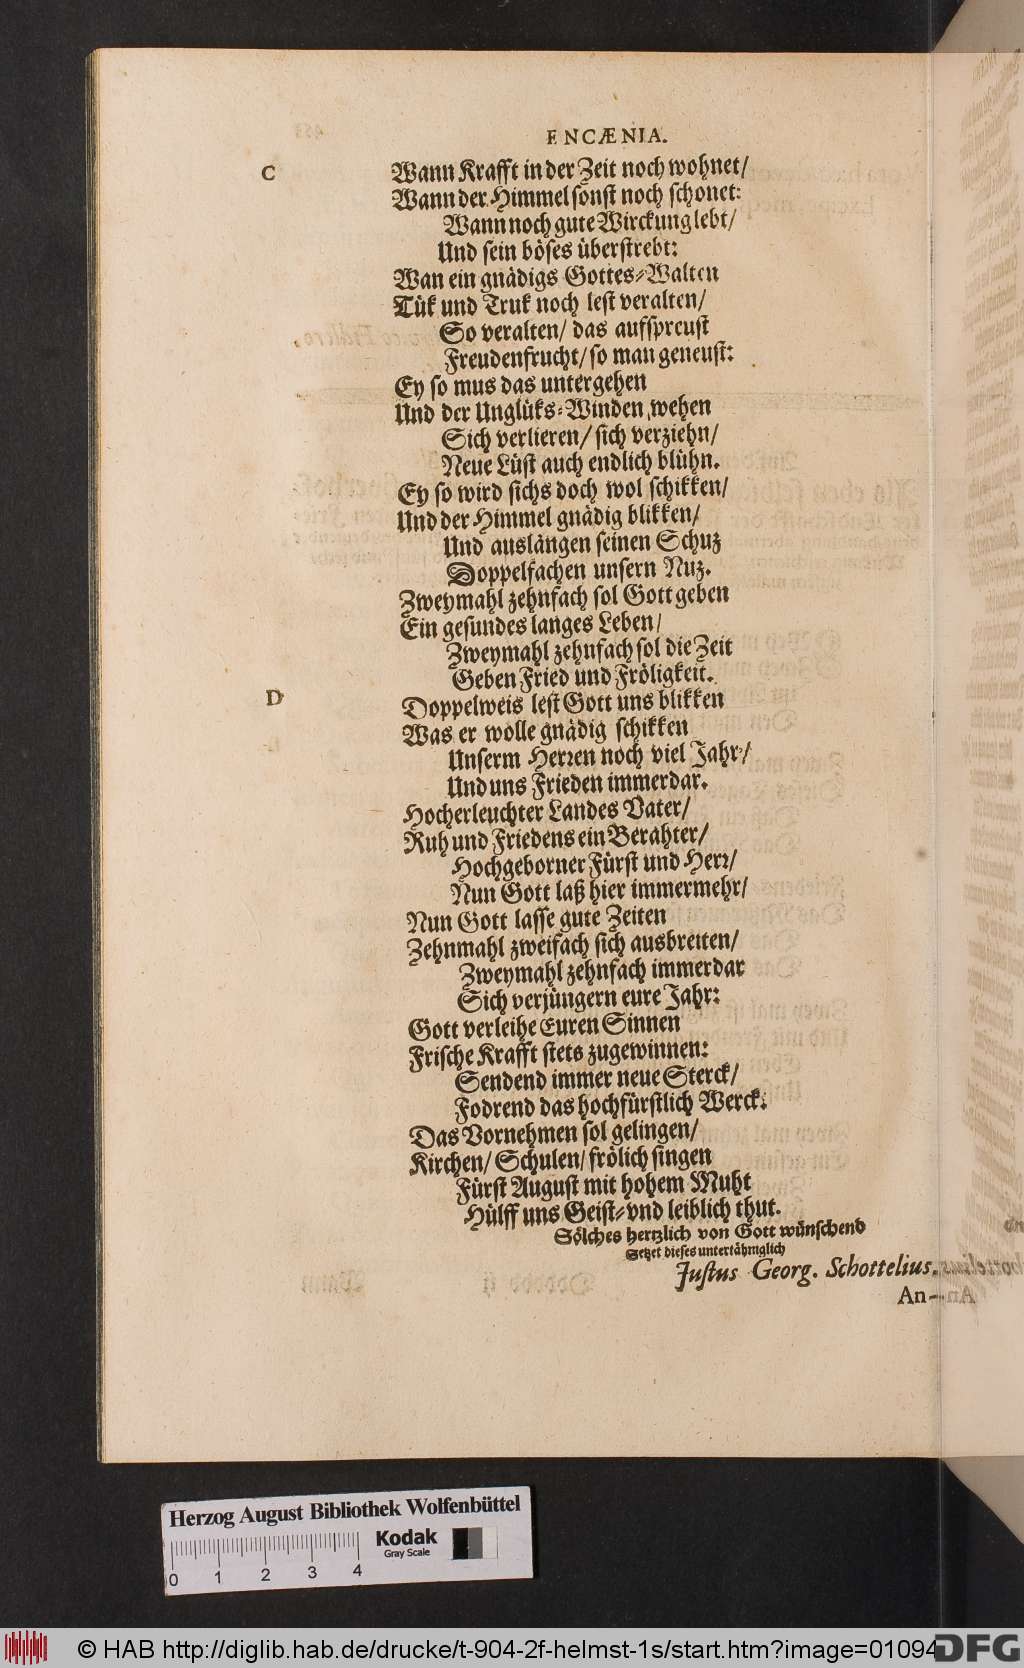 ENCÆNIA.
C
Wann Krafft in der Zeit noch wohnet/
Wann der Himmel sonst noch schonet:
Wann noch gute Wirckung lebt/
Und sein böses überstrebt:
Wan ein gnädigs Gottes-Walten
Tük und Truk noch lest veralten/
So veralten/ das aufspreust
Freudenfrucht/ so man geneust:
Ey so mus das untergehen
Und der Unglüks-Winden wehen
Sich verlieren/ sich verziehn/
Neue Lüst auch endlich blühn.
Ey so wird sichs doch wol schikken/
Und der Himmel gnädig blikken/
Und auslängen seinen Schuz
Doppelfachen unsern Nuz.
Zweymahl zehnfach sol Gott geben
Ein gesundes langes Leben/
Zweymahl zehnfach sol die Zeit
Geben Fried und Fröligkeit.
D
Doppelweis lest Gott uns blikken
Was er wolle gnädig schikken
Unserm Herren noch viel Jahr/
Und uns Frieden immerdar.
Hocherleuchter Landes Vater/
Ruh und Friedens ein Berahter/
Hochgeborner Fürst und Herr/
Nun Gott laß hier immermehr/
Nun Gott lasse gute Zeiten
Zehnmahl zweifach sich ausbreiten/
Zweymahl zehnfach immerdar
Sich verjüngern eure Jahr:
Gott verleihe Euren Sinnen
Frische Krafft stets zugewinnen:
Sendend immer neue Sterck/
Fodrend das hochfürstlich Werck.
Das Vornehmen sol gelingen/
Kirchen/ Schulen/ frölich singen
Fürst August mit hohem Muht
Hülff uns Geist-vnd leiblich thut.
Sölches hertzlich von Gott wünschend
Setzet dieses untertähniglich
Justus Georg. Schottelius.
An-
Herzog August Bibliothek Wolfenbüttel
Kodak
Gray Scale
0 1 2 3 4
© HAB http://diglib.hab.de/drucke/t-904-2f-helmst-1s/start.htm?image=01094
DFG